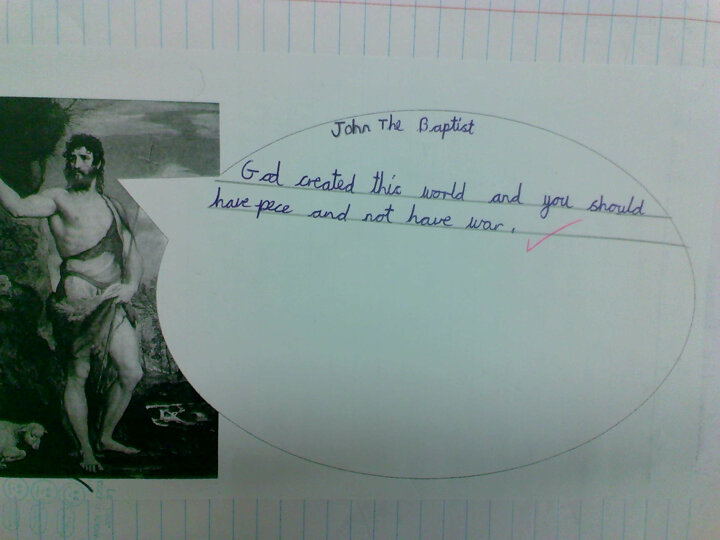 John The Baptist
God created this world and you should
have pece and not have war.